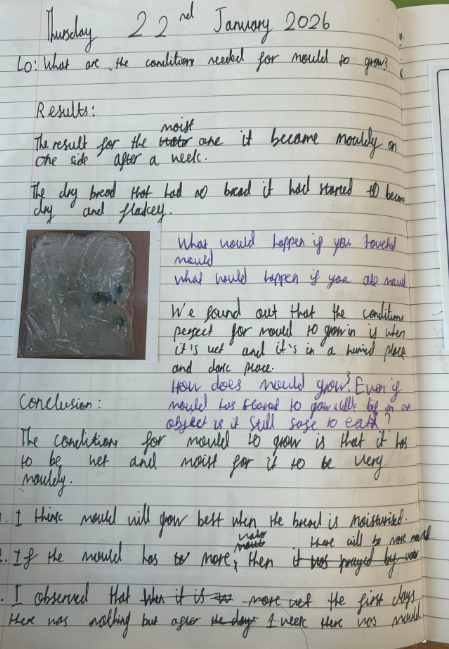 Thursday 22nd January 2026
LO: What are the conditions needed for mould to grow?
Results:
moist
The result for the one it became mouldy on
one side after a week.
The dry bread that had no bread it had started to become
dry and flakey.
What would happen if you touched
mould
What would happen if you ate mould
We found out that the conditions
perfect for mould to grow in is when
it's wet and it's in a humid place
and dark place.
How does mould grow? Even if
mould has started to grow little bit on an
object is it still safe to eat?
Conclusion:
The conditions for mould to grow is that it has
to be wet and moist for it to be very
mouldy.
1. I think mould will grow best when the bread is moisturised.
water there will be more mould.
2. If the mould has more, then it
I observed that it is more wet the first days
there was nothing but after 1 week there was mould.